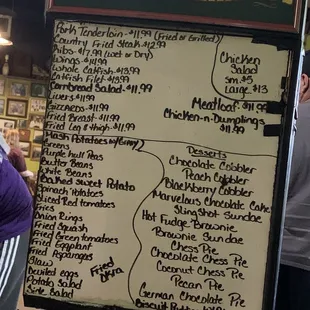 Pork Tenderloin - $11.99 (Fried or Grilled)
Country Fried Steak $12.99
Ribs - $17.99 (wet or Dry)
Wings - $14.99
Whole Catfish - $13.99
Catfish Filet - $13.99
Cornbread Salad - $11.99
Livers - $11.99
Gizzards - $11.99
Fried Breast - $11.99
Fried Leg & thigh - $11.99
Chicken
Salad
Sm. $5
Large $13
Meatloaf - $11.99
Chicken-n-Dumplings
$11.99
Mash Potatoes w/Gravy
Greens
Purple hull Peas
Butter Beans
White Beans
Baked Sweet Potato
Spinach Potatoes
Sliced Red tomatoes
Fries
Onion Rings
Fried Squash
Fried Green tomatoes
Fried Eggplant
Fried Asparagus
Slaw
Deviled eggs
Potato Salad
Side Salad
Fried
Okra
Desserts
Chocolate Cobbler
Peach Cobbler
Blackberry Cobbler
Marvelous Chocolate Cake
Slingshot Sundae
Hot Fudge Brownie
Brownie Sundae
Chess Pie
Chocolate Chess Pie
Coconut Chess Pie
Pecan Pie
German Chocolate Pie
Biscuit